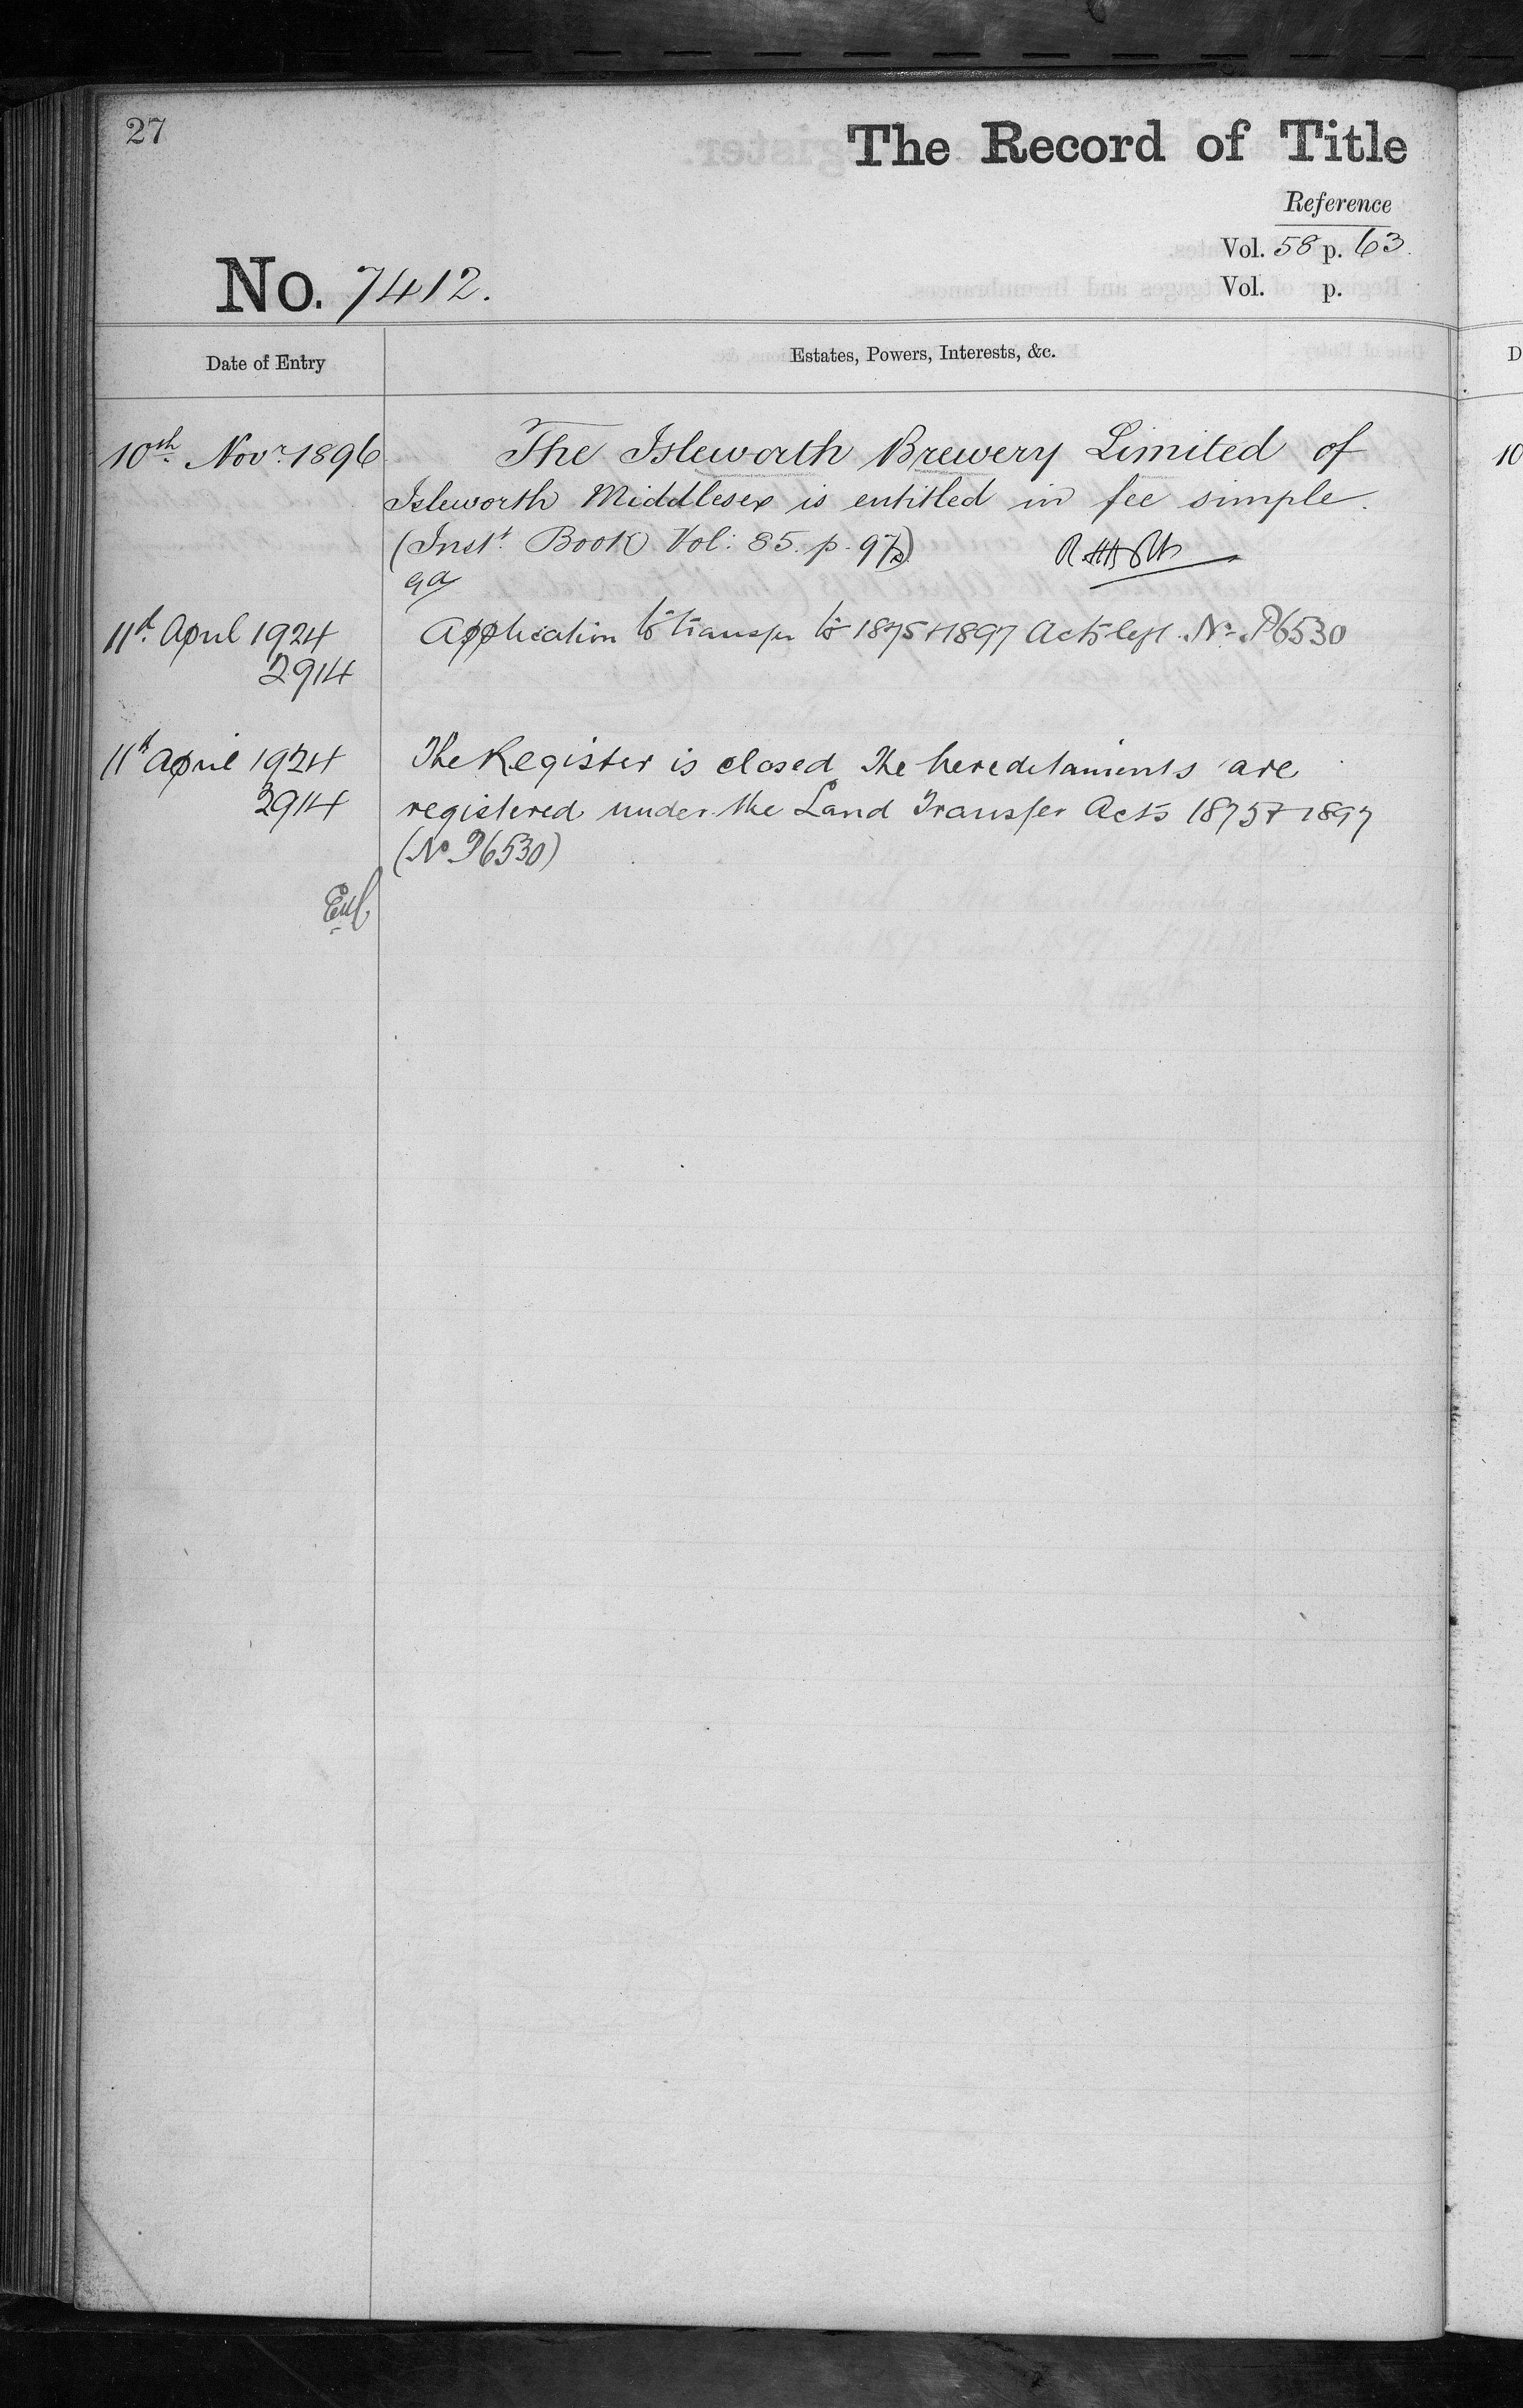 27
The Record of Title
Reference
Vol. 58 p. 63.
No. 7412.
Vol. p.
Date of Entry
Estates, Powers, Interests, &c.
10th Novr 1896
The Isleworth Brewery Limited of
Isleworth Middlesex is entitled in fee simple.
(Inst. Book Vol: 85. p. 97)
11th April 1924
Application to transfer to 1875 & 1897 Acts left. No. P6530
2914
11th April 1924
The Register is closed The hereditaments are
2914
registered under the Land Transfer Acts 1875 & 1897
(No P6530)
D
10